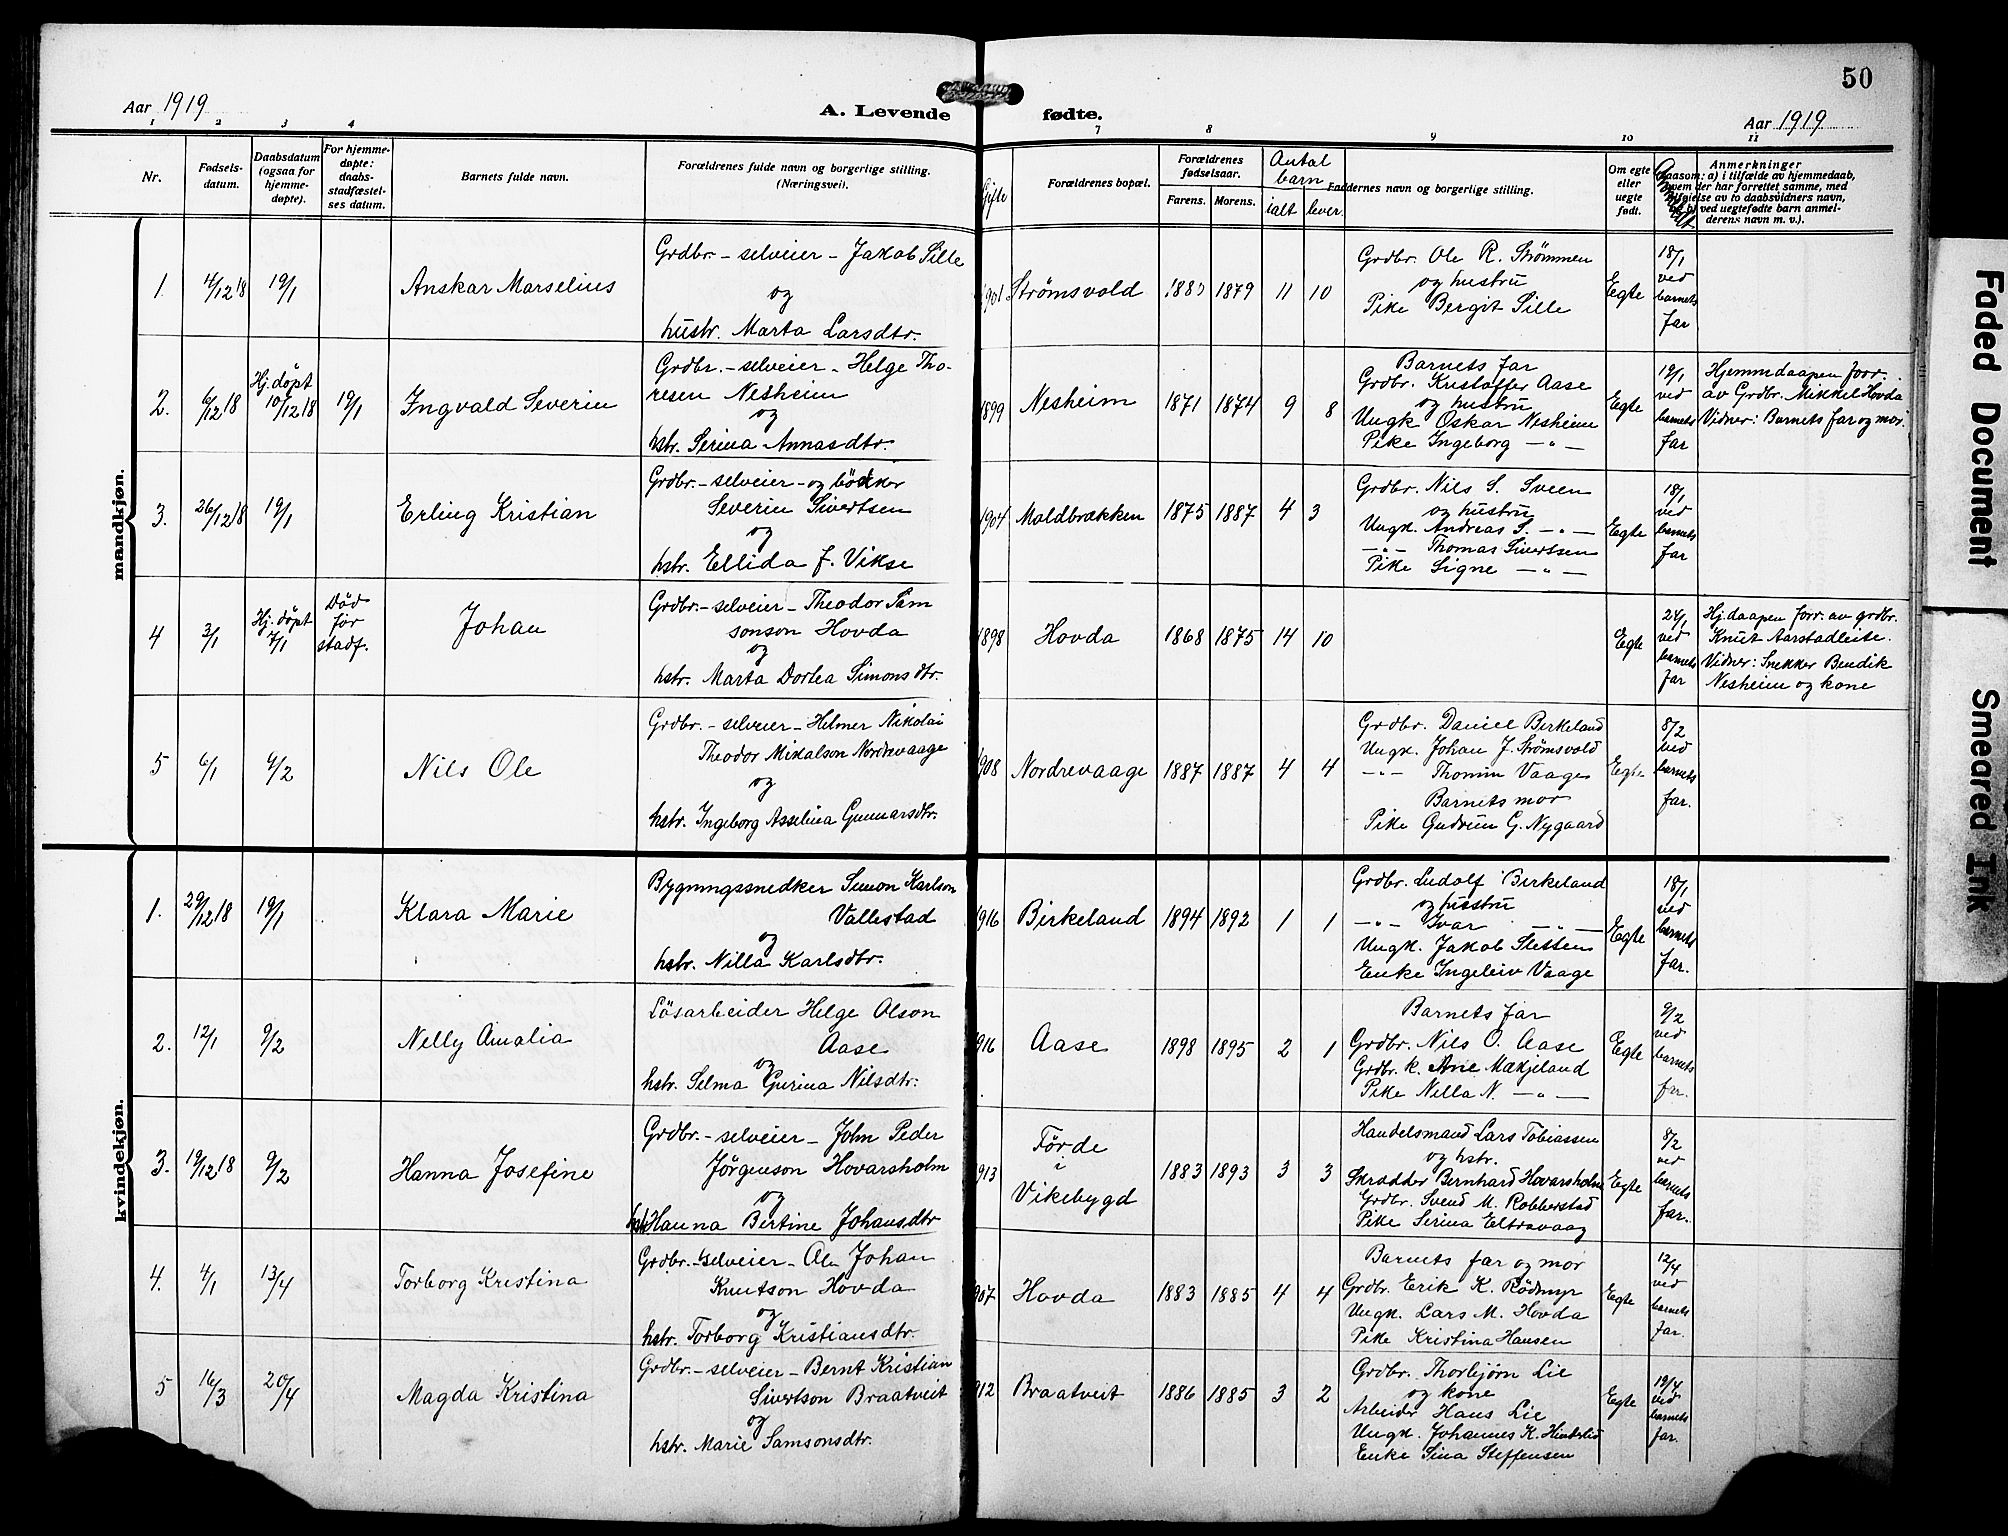 50
Aar 1919
A. Levende fødte.
Aar 1919
1 2 3 4 7 8 9 10 11
Nr.
Fødsels-
datum.
Daabsdatum
(ogsaa for
hjemme-
døpte).
For hjemme-
døpte:
daabs-
stadfæstel-
ses datum.
Barnets fulde navn.
Forældrenes fulde navn og borgerlige stilling.
(Næringsvei).
Gifte
Forældrenes bopæl.
Forældrenes
fødselsaar.
Farens. Morens.
Antal
barn
ialt lever
Faddernes navn og borgerlige stilling.
Om egte
eller
uegte
født.
Anmerkninger
(saasom: a) i tilfælde av hjemmedaab,
hvem der har forrettet samme, med
tilføielse av to daabsvidners navn,
og b) ved uegtefødte barn anmel-
derens navn m. v.).
mandkjøn.
1. 4/12 18 19/1 Anskar Marselius
Grdbr. - selveier - Jakob Sille
og
hustr. Marta Larsdtr.
1901 Strømsvold 1883 1879 11 10
Grdbr. Ole R. Strømmen
og hustru
Pike Bergit Sille
Egte
18/1
ved
barnets
far
2. 6/12 18
Hj. døpt
10/12 18
19/1 Ingvald Severin
Grdbr. - selveier - Helge Tho-
resen Nesheim
og
hstr. Serina Annasdtr.
1899 Nesheim 1871 1874 9 8
Barnets far
Grdbr. Kristoffer Aase
og hustru
Ungk Oskar Nesheim
Pike Ingeborg -"-
Egte
19/1
ved
barnets
far
Hjemmedaapen forr.
av Grdbr. Mikkel Hovda
Vidner: Barnets far og mor.
3. 26/12 18 19/1 Erling Kristian
Grdbr. - selveier - og bøkker
Severin Sivertsen
og
hstr. Ellida f. Vikse
1904 Moldbrækken 1875 1887 4 3
Grdbr. Nils S. Sveen
og hustru
Ungk. Andreas S. -"-
-"- Thomas Sivertsen
Pike Signe -"-
Egte
18/1
ved
barnets
far
4 3/1
Hj. døpt
7/1
Død
før
stadf.
Johan
Grdbr. - selveier - Theodor Sam
sonson Hovda
og
hstr. Marta Dortea Simonsdtr.
1898 Hovda 1868 1875 14 10
Egte
24/1
ved
barnets
far
Hj. daapen forr. av grdbr.
Knut Aarstadleite.
Vidner: Snekker Bendik
Nesheim og kone
5 6/1 9/2 Nils Ole
Grdbr. - selveier - Helmer Nikolai
Theodor Mikalson Nordrevaage
og
hstr. Ingeborg Asselina Gunnarsdtr.
1908 Nordrevaage 1887 1887 4 4
Grdbr. Daniel Birkeland
Ungk. Johan J. Strømsvold
-"- Thomin Vaage
Barnets mor
Pike Gudrun G. Nygaard
Egte
8/2
ved
barnets
far.
kvindekjøn.
1. 29/12 18 19/1 Klara Marie
Bygningssnedker Simon Karlson
Vallestad
og
hstr. Nilla Karlsdtr.
1916 Birkeland 1894 1892 1 1
Grdbr. Ludolf Birkeland
og hustru
-"- Ivar -"-
Ungk. Jakob Slettem
Enke Ingeleiv Vaage
Egte
18/1
ved
barnets
far.
2. 12/1 9/2 Nelly Amalia
Løsarbeider Helge Olson
Aase
og
hstr. Selma Gurina Nilsdtr.
1916 Aase 1898 1895 2 1
Barnets far
Grdbr. Nils O. Aase
Grdbr. k. Ane Mækjeland
Pike Nilla N. -"-
Egte
9/2
ved
barnets
far.
3. 19/12 18 9/2 Hanna Josefine
Grdbr. - selveier - John Peder
Jørgenson Hovarsholm
og
hst. Hanna Bertine Johansdtr
1913
Førde
i
Vikebygd
1883 1893 3 3
Handelsmand Lars Tobiassen
og hstr.
Skrædder Bernhard Hovarsholm
Grdbr. Svend M. Robberstad
Pike Serina Eltravaag
Egte
8/2
ved
barnets
far.
4. 4/1 13/4 Torborg Kristina
Grdbr. - selveier - Ole Johan
Knutson Hovda
og
hstr. Torborg Kristiansdtr.
1907 Hovda 1883 1885 4 4
Barnets far og mor
Grdbr. Erik K. Rødmyr
Ungk. Lars M. Hovda
Pike Kristina Hansen
Egte
12/4
ved
barnets
far.
5 16/3 20/4 Magda Kristina
Grdbr. - selveier - Bernt Kristian
Sivertson Braatveit
og
hstr. Marie Samsonsdtr.
1912 Braatveit 1886 1885 3 2
Grdbr. Thorbjørn Lie
og kone
Arbeider Hans Lie
Ungk. Johannes K. Hinderlid
Enke Sina Steffensen
Egte
19/4
ved
barnets
far.
Faded Document
Smeared Ink